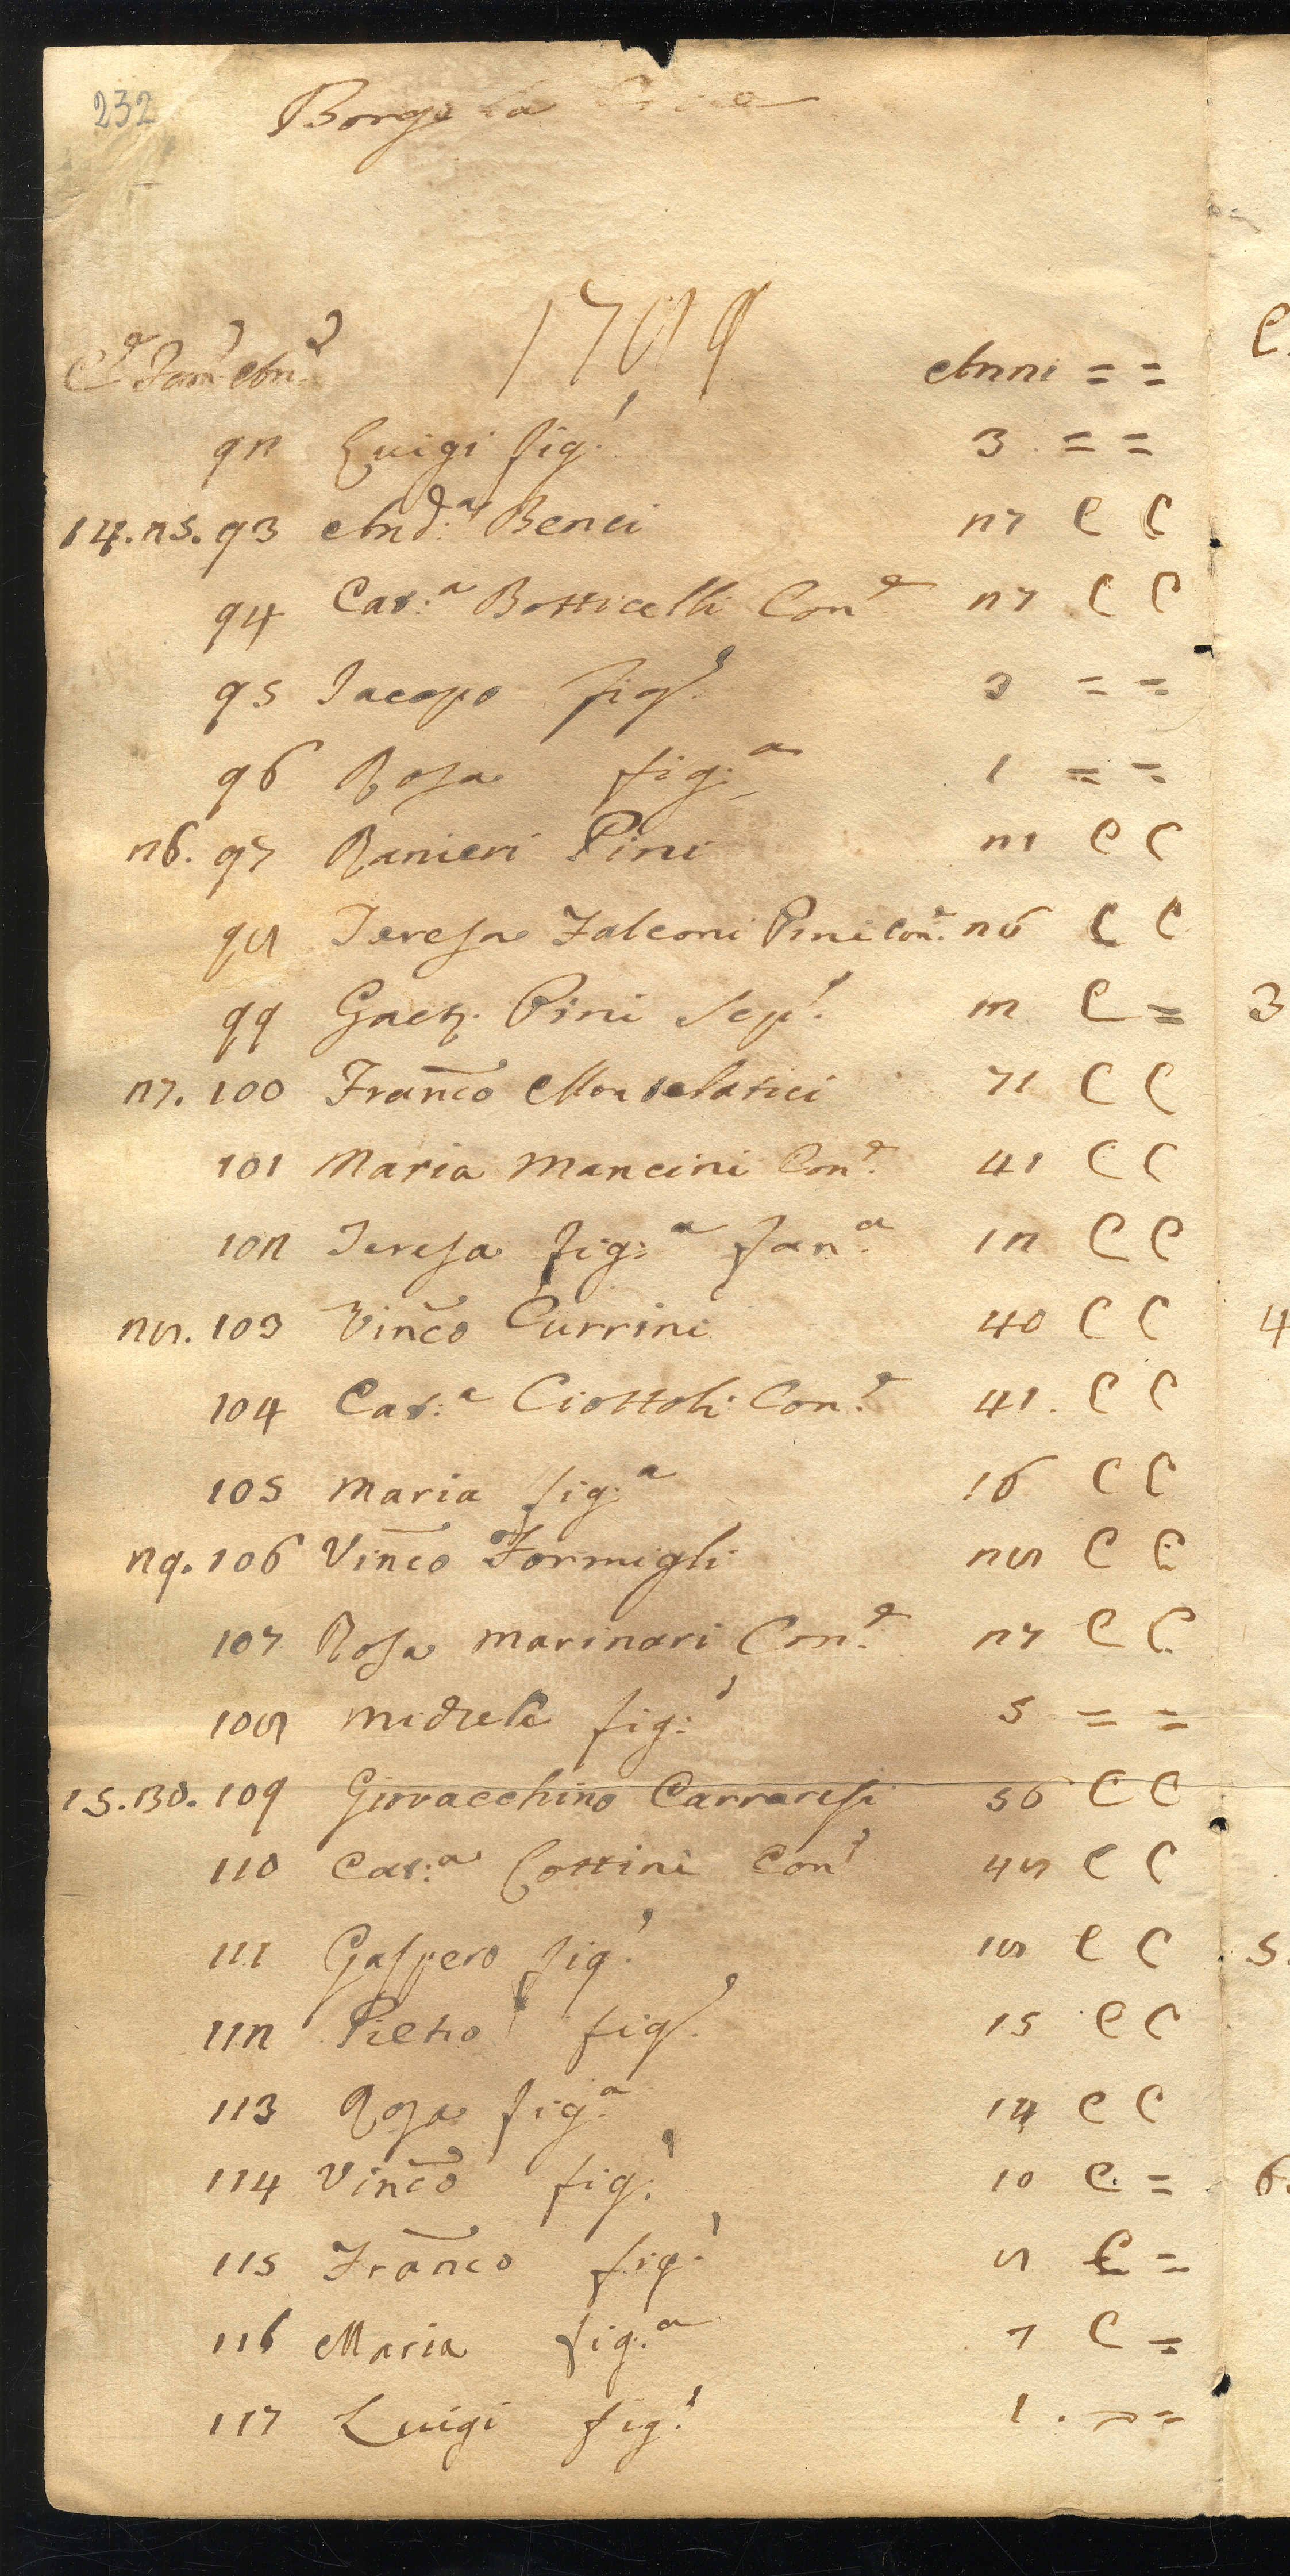 232
Borgo La
1789
Ce Fam Ani Anni = =
92 Luigi fig:o 3 = =
14. 25. 93 And:a Benci 27 C C
94 Cat:a Botticelli Con:e 27 C C
95 Jacopo fig:o 3 = =
96 Rosa fig:a 1 = =
26. 97 Ranieri Pini 21 C C
98 Teresa Falconi Pini Con:e 26 C C
99 Gaet. Pini Sep:e 12 C =
27. 100 Franco Monselatici 71 C C
101 Maria Mancini Con:e 41 C C
102 Teresa fig:a Fan:a 12 C C
28. 103 Vinco Currini 40 C C
104 Cat:a Ciottoli Con:e 41. C C
105 Maria fig:a 16 C C
29. 106 Vinco Formigli 28 C C
107 Rosa Marinari Con:e 27 C C
108 Michele fig:o 5 = =
15. 30. 109 Giovacchino Carraresi 56 C C
110 Cat:a Cottini Con:e 48 C C
111 Gaspero fig:o 18 C C
112 Pietro fig:o 15 C C
113 Rosa fig:a 14 C C
114 Vinco fig:o 10 C =
115 Franco fig:o 8 C =
116 Maria fig:a 7 C =
117 Luigi fig:o 1 . = =
C.
3
4
5.
6.